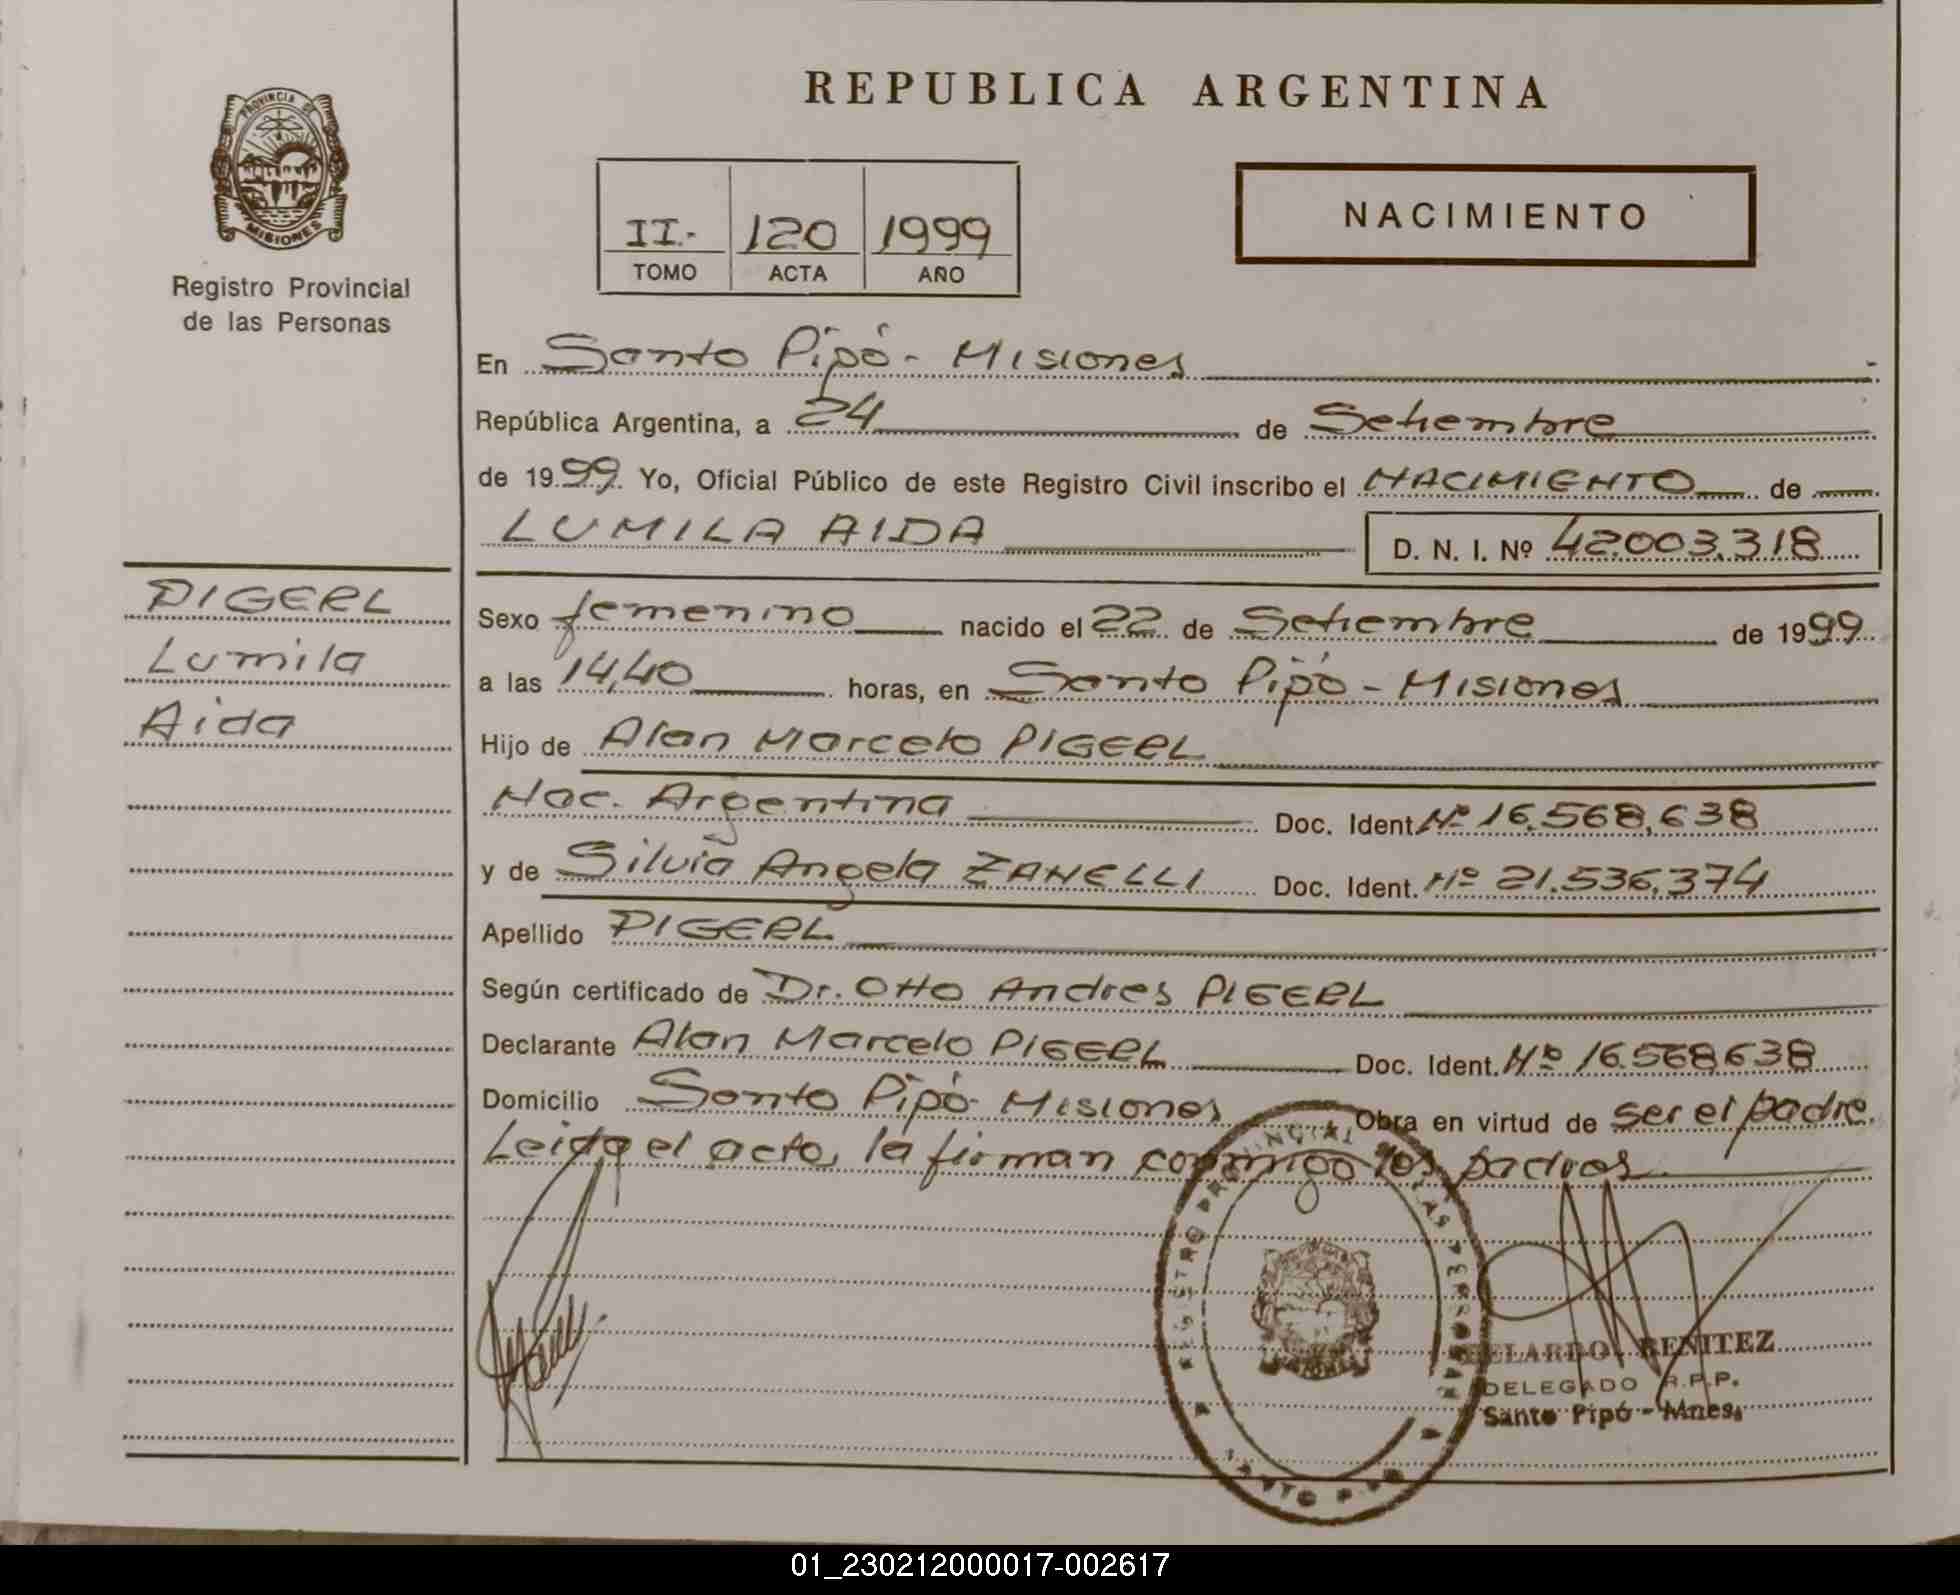 REPUBLICA ARGENTINA
PROVINCIA DE
MISIONES
Registro Provincial
de las Personas
II.- 120 1999
TOMO ACTA AÑO
NACIMIENTO
En Santo Pipó - Misiones
República Argentina, a 24 de Setiembre
de 1999. Yo, Oficial Público de este Registro Civil inscribo el NACIMIENTO de
LUMILA AIDA D. N. I. Nº 42.003.318
PIGERL
Lumila
Aida
Sexo femenino nacido el 22 de Setiembre de 1999
a las 14,40 horas, en Santo Pipó - Misiones
Hijo de Alan Marcelo PIGERL
Nac. Argentina Doc. Ident. Nº 16.568.638
y de Silvia Angela ZANELLI Doc. Ident. Nº 21.536.374
Apellido PIGERL
Según certificado de Dr. Otto Andres PIGERL
Declarante Alan Marcelo PIGERL Doc. Ident. Nº 16.568638
Domicilio Santo Pipó - Misiones Obra en virtud de ser el padre.
Leida el acta, la firman conmigo los padres
REGISTRO PROVINCIAL DE LAS PERSONAS
SANTO PIPO
BELARDO BENITEZ
DELEGADO R.P.P.
Santo Pipó - Mnes.
01_230212000017-002617